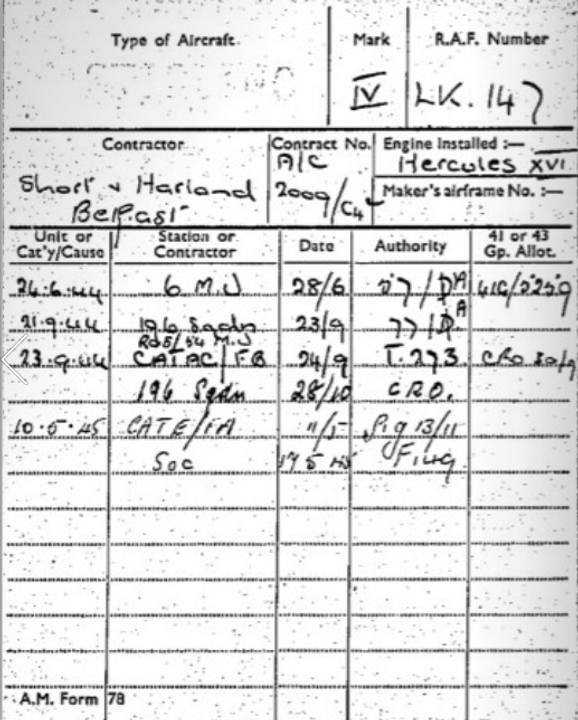 Type of Aircraft. Mark R.A.F. Number
IV LK.147
Contractor Contract No. Engine Installed :—
A/C Hercules XVI
Short & Harland 2009/C4 Maker's airframe No. :—
Belfast
Unit or Cat'y/Cause Station or Contractor Date Authority 41 or 43 Gp. Allot.
24.6.44 6 M.U 28/6 41G/
21.9.44 196 Sqdn 23/9
M.U
23.9.44 CATAC/FB 24/9 T.273 CRO
196 Sqdn 28/10 CRO.
10.5.45 CATE/FA 11/5 Sig 13/11
Soc 17 5 45
A.M. Form 78